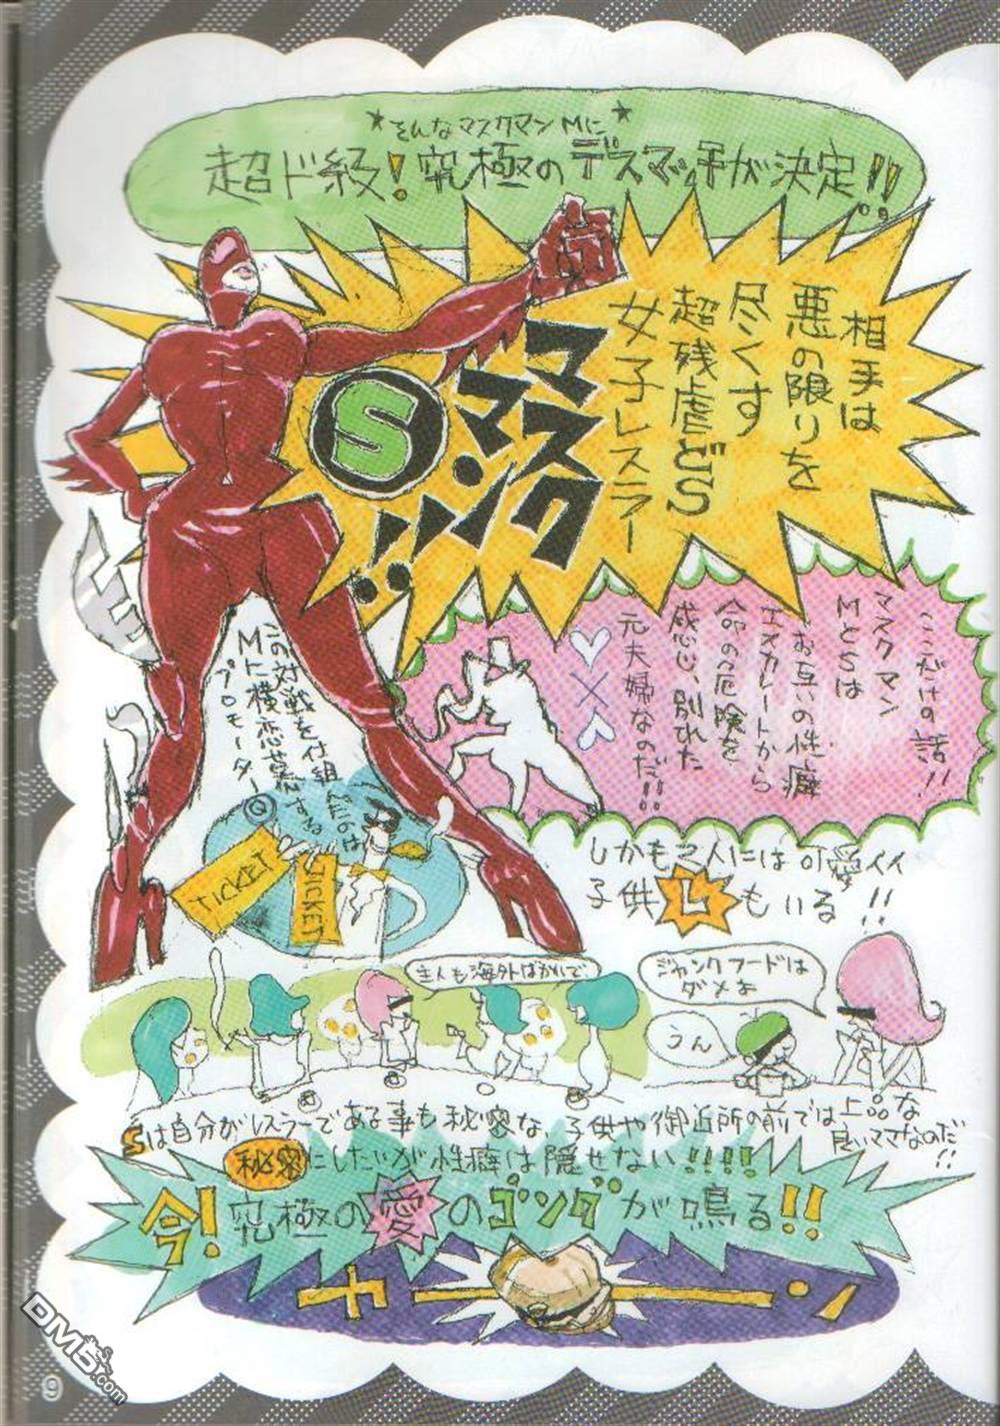 ★そんなマスクマンMに★
超ド級！究極のデスマッチが決定!!
相手は
悪の限りを
尽くす
超残虐どS
女子レスラー
マスク
マン
S!!
ここだけの話!!
マスクマン
MとSは
お互いの性癖
エスカレートから
命の危険を
感じ、別れた
元夫婦なのだ!!
この対戦を仕組んだのは
Mに横恋慕する
プロモーターQ
TICKET
TICKET
しかも二人には可愛イイ
子供Lもいる!!
主人も海外ばかいで
ジャンクフードは
ダメよ
うん
Sは自分がレスラーである事も秘密な、子供や御近所の前では上品な
良いママなのだ!!
秘密にしたいが性癖は隠せない!!!!
今！究極の愛のゴングが鳴る!!
チーン
DM5.com
9